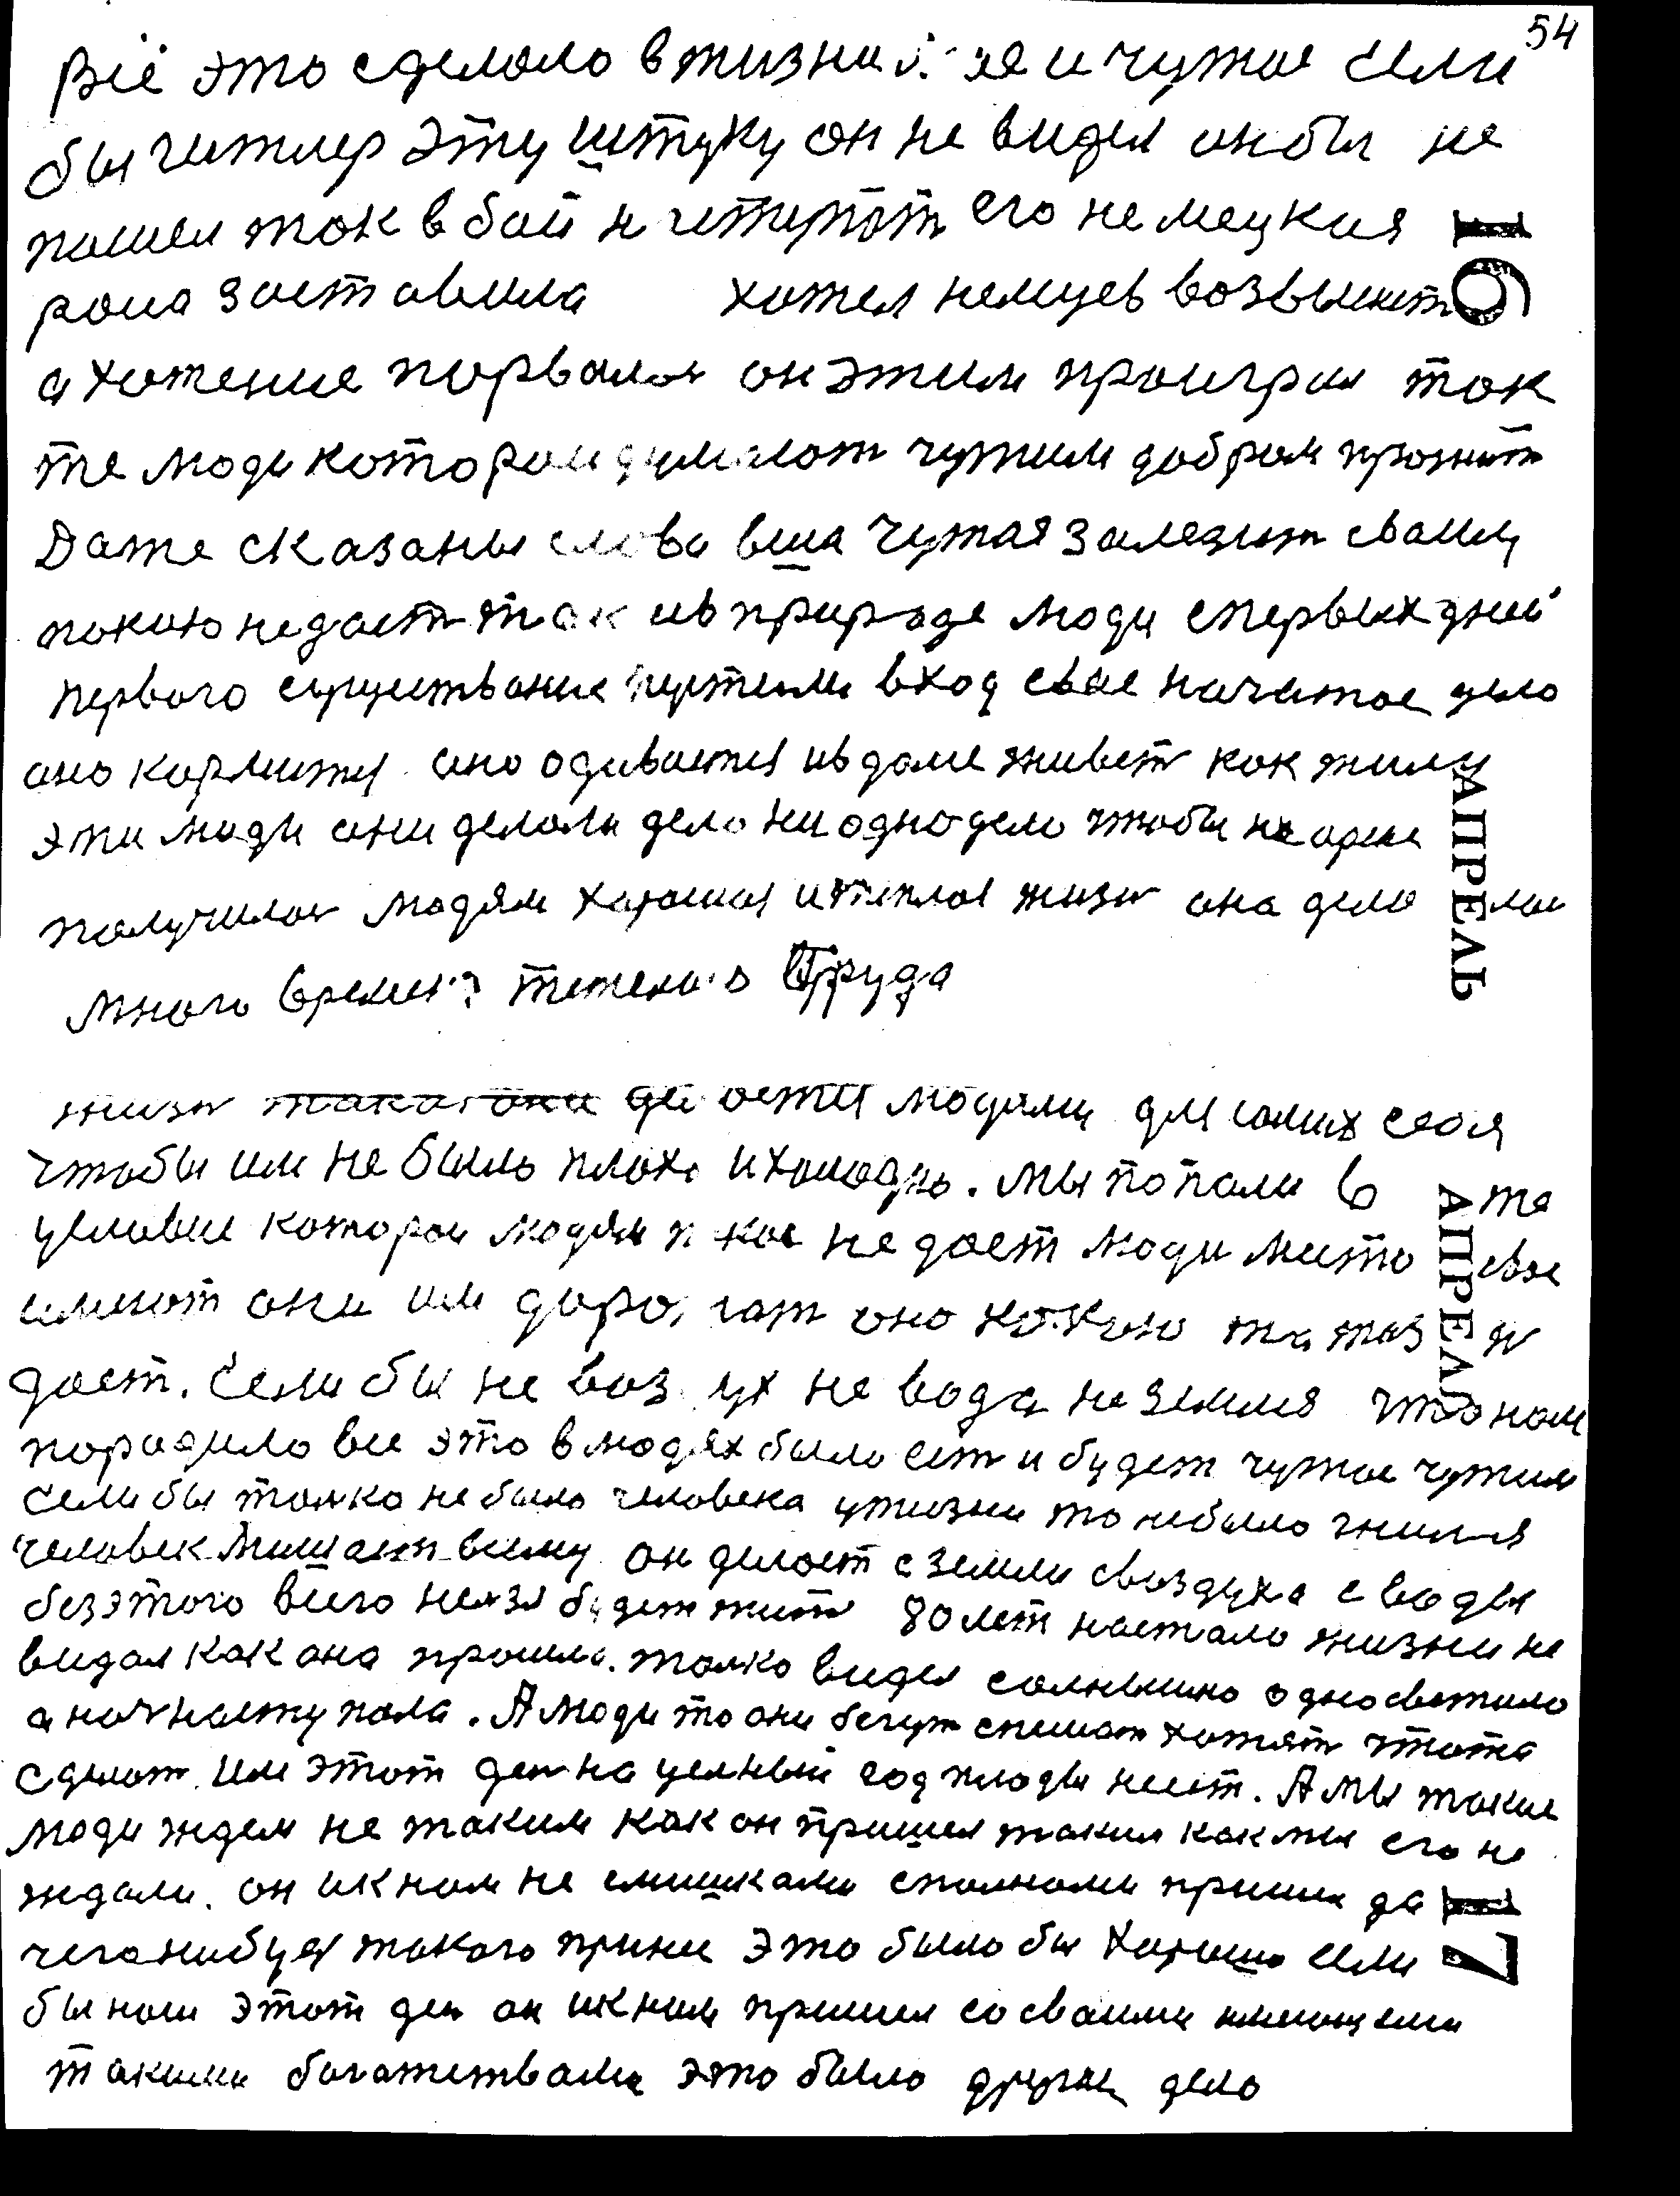 54
Всё это сделоло в жизни и чужое если
бы гитлер эту штуку он не видел он бы не
пошел ток в бой его немецкия
роса заставила хотел немцев возвысит
а хотение порвалос он этим проиграл ток
те люди которои думают чужим добром прожит
Даже сказаны слова вша чужая залезит сваму
покою недаст так ив природе люди спервых дней
первого существание вход свае начатое дело
оно кормится оно одивается ив доме живет как жили
эти люди они делоли дело ни одно дело чтобы
получилос людям хорошая итеплоя жизн она
много времен труда
16
АПРЕЛЬ
жизн людями для самих себя
чтобы им не было плохо ихолодно. Мы попали в те
условие которои людям не доет люди место свое
имеют они им оно
доет. Если бы не воздух не вода не земля что нам
породило все это в людях было ест и будет чужое чужим
Если бы толко не было человека ужизни то небыло
человек мишает всиму он делоет с земли своздуха с воды
безэтого всиго нелзя будет жит 80 лет настало жизни не
видал как она прошла. толко видел солнышко одно светило
а ноч наступала. А люди то они бегут спешат хотят чтото
сделот им этот ден на целный год плоды несет. А мы такие
люди ждем не таким как он пришел таким как мы его не
ждали. он икнам не смишками сполноми пришел да
чегонибуд такого принес Это было бы Хорошо если
бы наш этот ден он икнам пришел со сваими
такими багатствами это было другое дело
АПРЕЛЬ
17